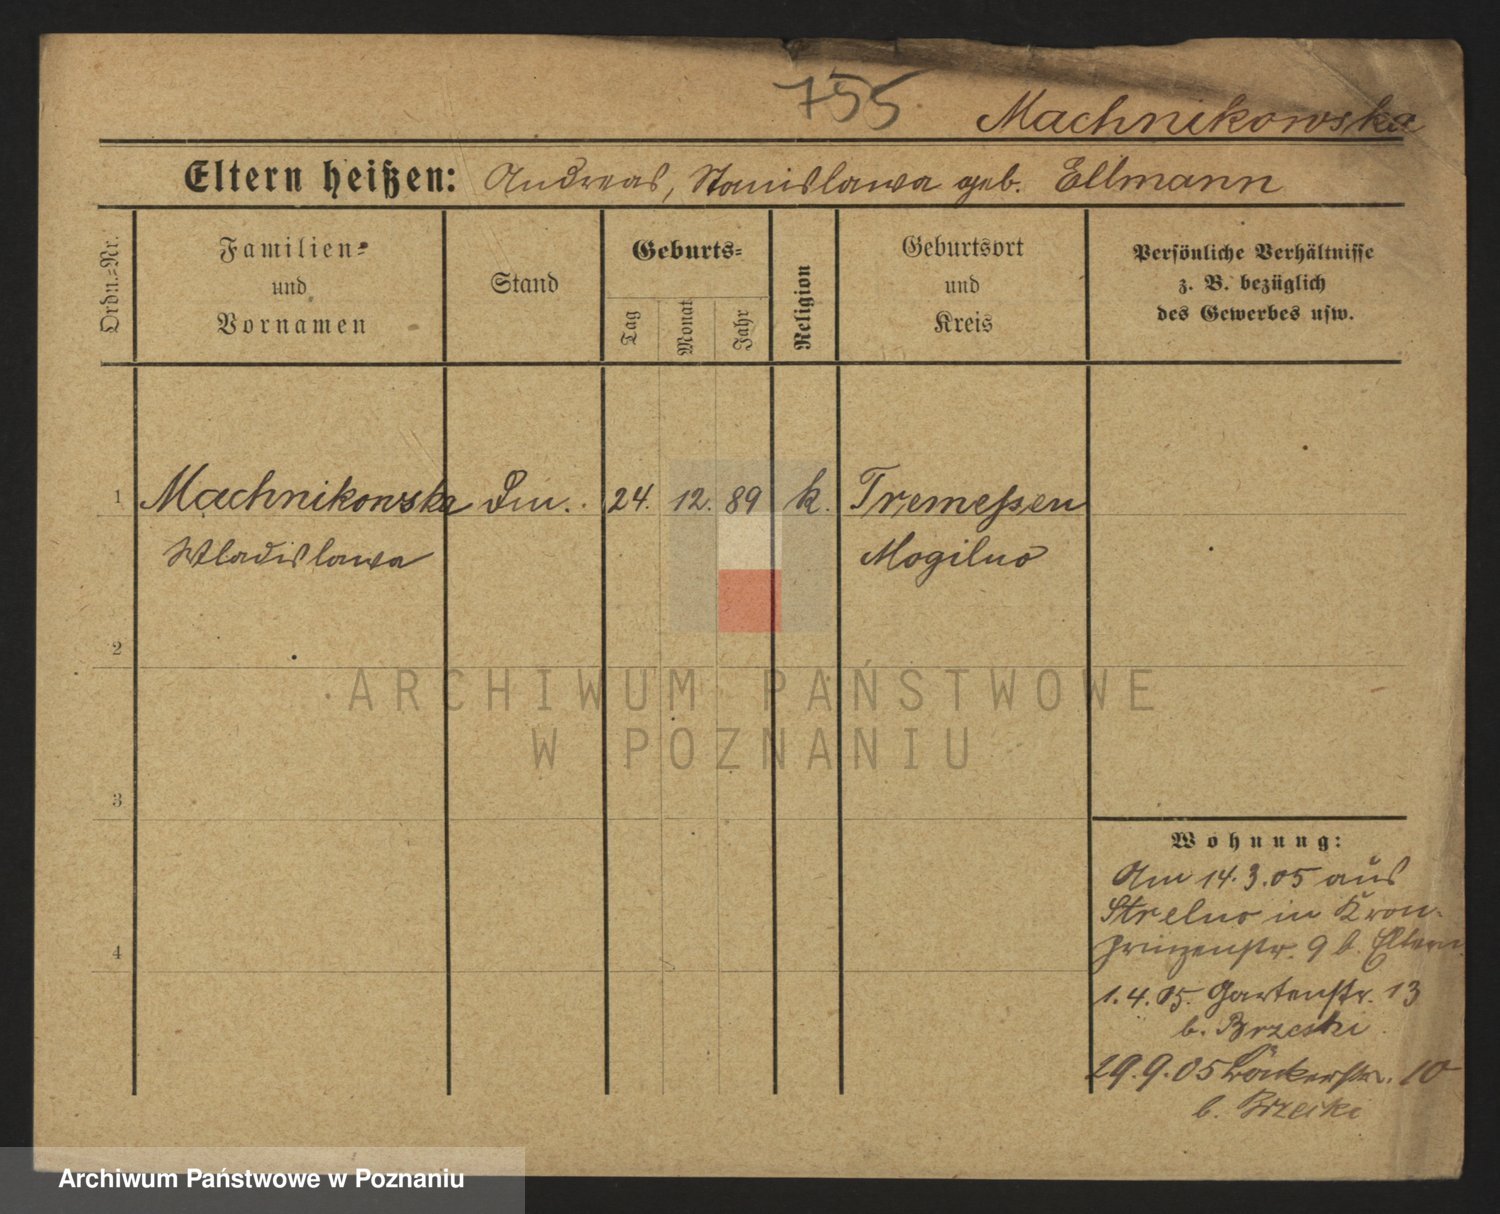 755
Machnikowska
Eltern heißen: Andreas, Stanislawa geb. Ellmann
Ordn.-Nr.
Familien- und Vornamen
Stand
Geburts-
Tag
Monat
Jahr
Religion
Geburtsort und Kreis
Persönliche Verhältnisse
z. B. bezüglich
des Gewerbes usw.
1 Machnikowska 24. 12. 89 k. Tremessen
Wladislawa Mogilno
2
3
4
Wohnung:
Am 14.3.05 aus
Strelno in Kron-
prinzenstr. 9 b. Eltern.
1.4.05. Gartenstr. 13
b. Brzeski
29.9.05 10
b. Brzeski
ARCHIWUM PAŃSTWOWE
W POZNANIU
Archiwum Państwowe w Poznaniu